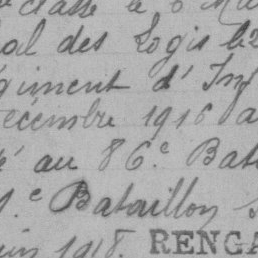 classe le 6 Ma
al des Logis le 2
giment d'Inf
écembre 1916 a
é au 86.e Bata
1.e Bataillon s
uin 1918. RENGA